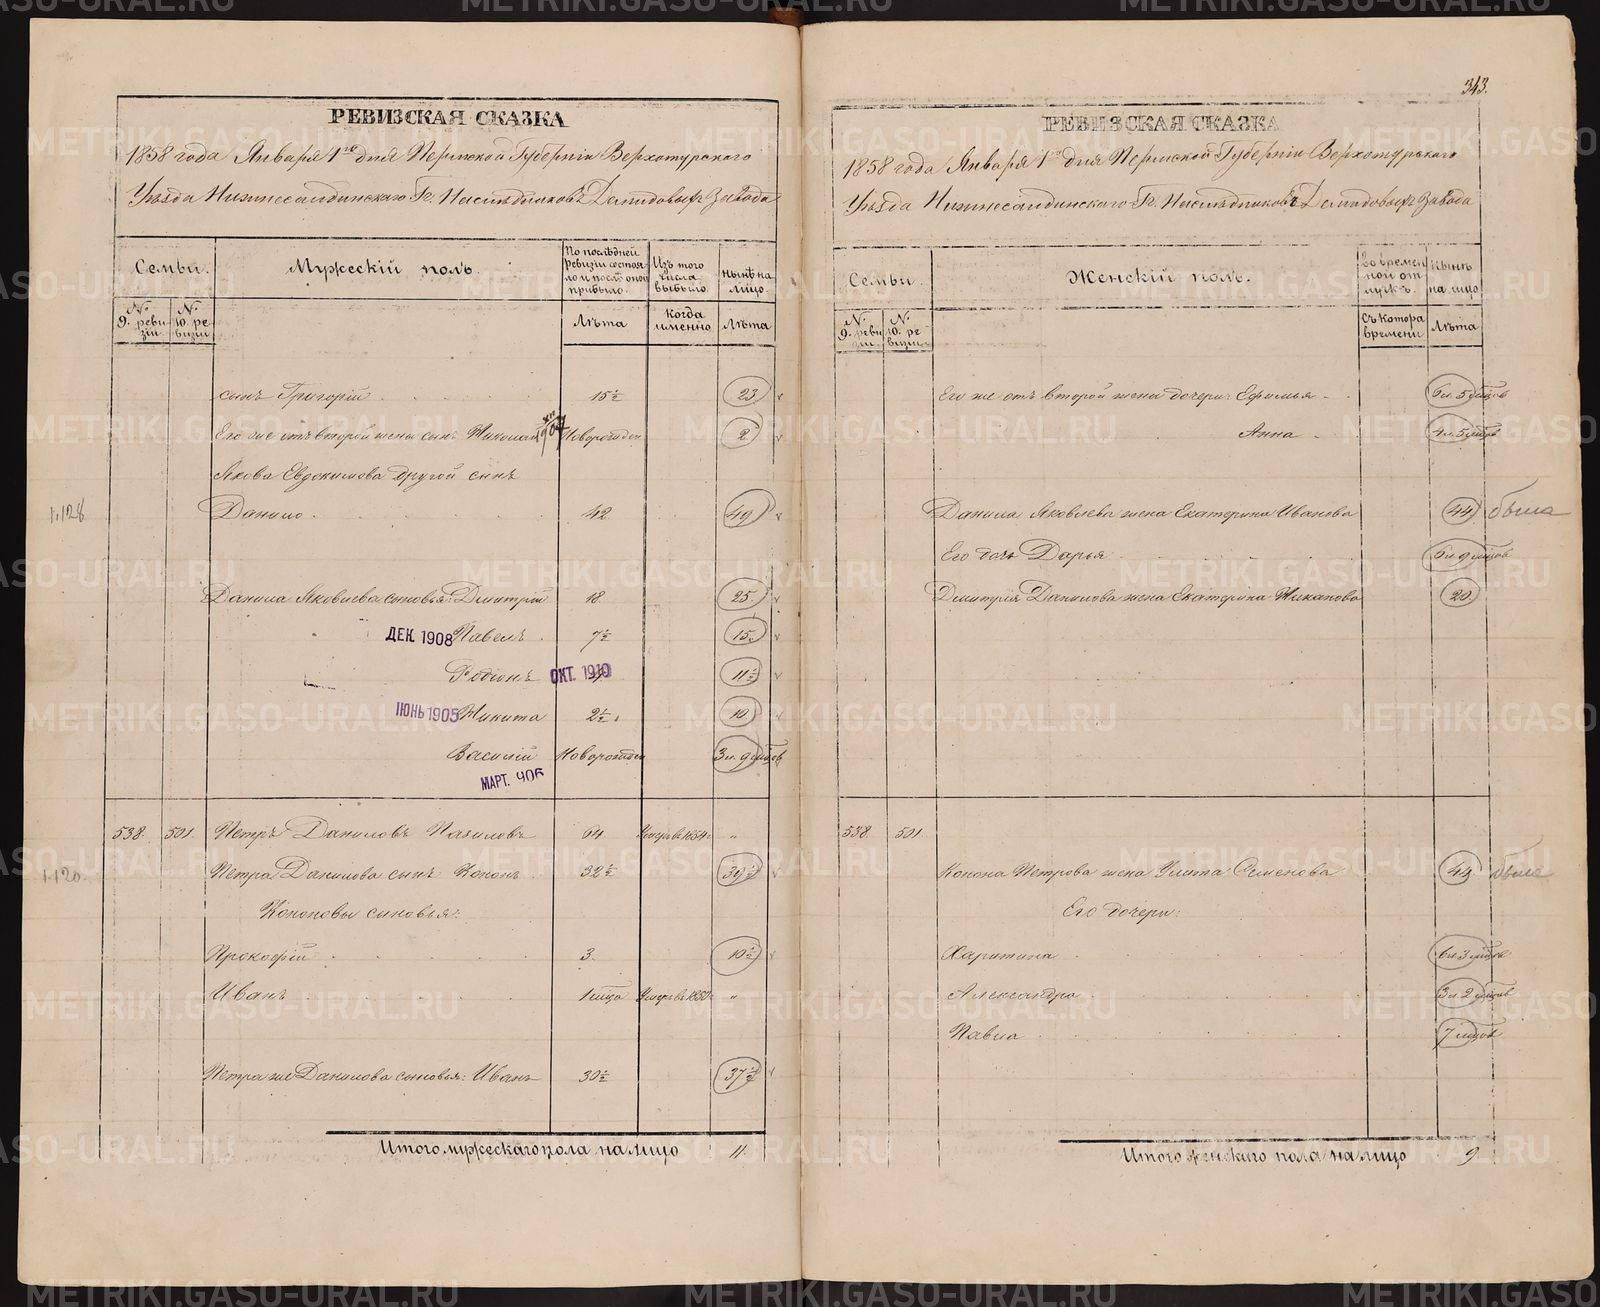 РЕВИЗСКАЯ СКАЗКА
1858 года Января 1го дня Пермской Губерніи Верхотурского
Уѣзда Нижнесалдинскаго Гг. Наслѣдниковъ Демидовыхъ Завода
Семьи.
Мужескій полъ.
По послѣдней ревизіи состояло и послѣ оной прибыло.
Изъ того числа выбыло.
Нынѣ на лицо.
№ 9. ревизіи
№ 10. ревизіи
Лѣта
Когда именно
Лѣта
сынъ Григорій 15½ 23
Его же отъ второй жены сынъ Николай Новорожден 2
Якова Евдокимова другой сынъ
1,128.
Данило. 42 49
Данила Яковлева сыновья: Дмитрій 18. 25
ДЕК. 1908 Павелъ 7½ 15
Родіонъ ОКТ. 1910 11½
ІЮНЬ 1905 Никита 2½ 10
Василій Новорожден 3 л 9 мцов
МАРТ. 906
538. 501. Петръ Даниловъ 64 Умеръ въ 1854 г „
1.120.
Петра Данилова сынъ Кононъ 32½ 39½
Кононовы сыновья:
Прокофій 3. 10½
Иванъ 1 мца Умеръ въ 1850 г „
Петра же Данилова сыновья: Иванъ 30½ 37½
Итого мужескаго пола на лицо 11.
343.
РЕВИЗСКАЯ СКАЗКА
1858 года Января 1го дня Пермской Губерніи Верхотурскаго
Уѣзда Нижнесалдинскаго Гг. Наслѣдниковъ Демидовыхъ Завода
Семьи.
Женскій полъ.
Во временной отлучкѣ.
Нынѣ на лицо
№ 9. ревизіи
№ 10. ревизіи
Съ котора времени
Лѣта
Его же отъ второй жены дочери: Ефимья 6 л. 5 мцов
Анна 4 л. 5 мцов
Данила Яковлева жена Екатерина Иванова 44 была
Его дочь Дарья 6 л 9 мцов
Дмитрія Данилова жена Екатерина 20
538. 501.
Конона Петрова жена Улита Семенова 44 была
Его дочери:
Харитина 6 л 3 мцов
Александра 3 л 2 мцов
Павла 7 мцов
Итого женскаго пола на лицо 9
METRIKI.GASO-URAL.RU